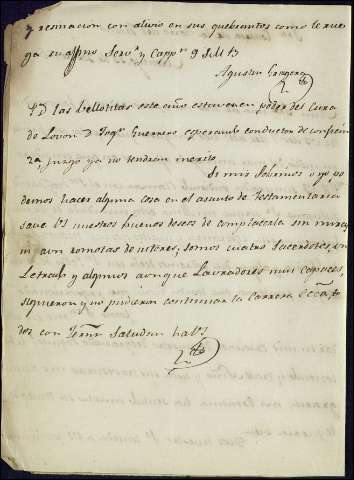 y resignacion con alivio en sus quebrantos como le rue-
ga su affmo Servr y Cappn q S M B
Agustin Gragera
P.D. las bellotitas este año estuvieron en poder del Cura
de Lovon D Joqn Guerrero esperando conductor de confian-
za, juzgo ya no tendran merito
Si mis Sobrinos o yo po
demos hacer alguna cosa en el asunto de Testamentaria
save Vs nuestros buenos deseos de complacerla sin mira
ni aun remotas de interes; somos cuatro Sacerdotes, un
Letrado y algunos aunque Lavradores mui capaces,
siguieron y no pudieron continuar la carrera to
dos con saludan ha Vs